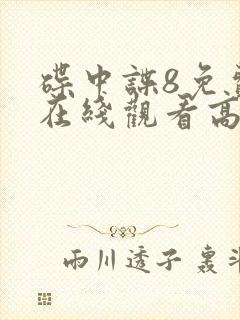 碟中諜8免費
在綫觀看高
雨川透子 轰